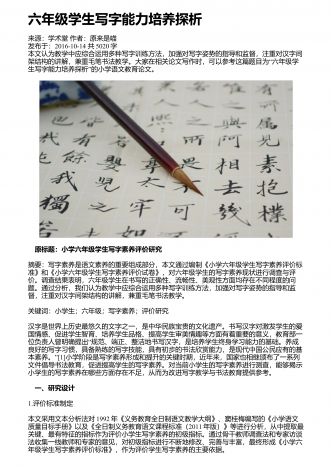 六年级学生写字能力培养探析
来源：学术堂 作者：原来是喵
发布于：2016-10-14 共5020字
本文认为教学中应综合运用多种写字训练方法，加强对写字姿势的指导和监督，注重对汉字间
架结构的讲解，兼重毛笔书法教学。大家在相关论文写作时，可以参考这篇题目为“六年级学
生写字能力培养探析”的小学语文教育论文。
原标题：小学六年级学生写字素养评价研究
摘要：写字素养是语文素养的重要组成部分，本文通过编制《小学六年级学生写字素养评价标
准》和《小学六年级学生写字素养评价试卷》，对六年级学生的写字素养现状进行调查与评
价。调查结果表明，六年级学生在书写的正确性、流畅性、美观性方面均存在不同程度的问
题。通过分析，我们认为教学中应综合运用多种写字训练方法，加强对写字姿势的指导和监
督，注重对汉字间架结构的讲解，兼重毛笔书法教学。
关键词：小学生；六年级；写字素养；评价研究
汉字是世界上历史最悠久的文字之一，是中华民族宝贵的文化遗产。书写汉字对激发学生的爱
国情感、促进学生智育、培养学生品格、提高学生审美情趣等方面有着重要的意义，教育部一
位负责人曾明确提出“规范、端正、整洁地书写汉字，是培养学生终身学习能力的基础。养成
良好的写字习惯，具备熟练的写字技能，具有初步的书法欣赏能力，是现代中国公民应有的基
本素养。”[1]小学阶段是写字素养形成和提升的关键时期，近年来，国家也相继颁布了一系列
文件倡导书法教育，促进提高学生的写字素养。对当前小学生的写字素养进行测查，能够揭示
小学生的写字素养在哪些方面存在不足，从而为改进写字教学与书法教育提供参考。
一、研究设计
1.评价标准制定
本文采用文本分析法对 1992 年《义务教育全日制语文教学大纲》、要桂梅编写的《小学语文
质量目标手册》以及《全日制义务教育语文课程标准（2011 年版）》等进行分析，从中提取最
关键、最有特征的指标作为评价小学生写字素养的初级指标，通过骨干教师调查法和专家访谈
法收集一线教师和专家的意见，对初级指标进行不断地修改、完善与丰富，最终形成《小学六
年级学生写字素养评价标准》，作为评价学生写字素养的主要依据。